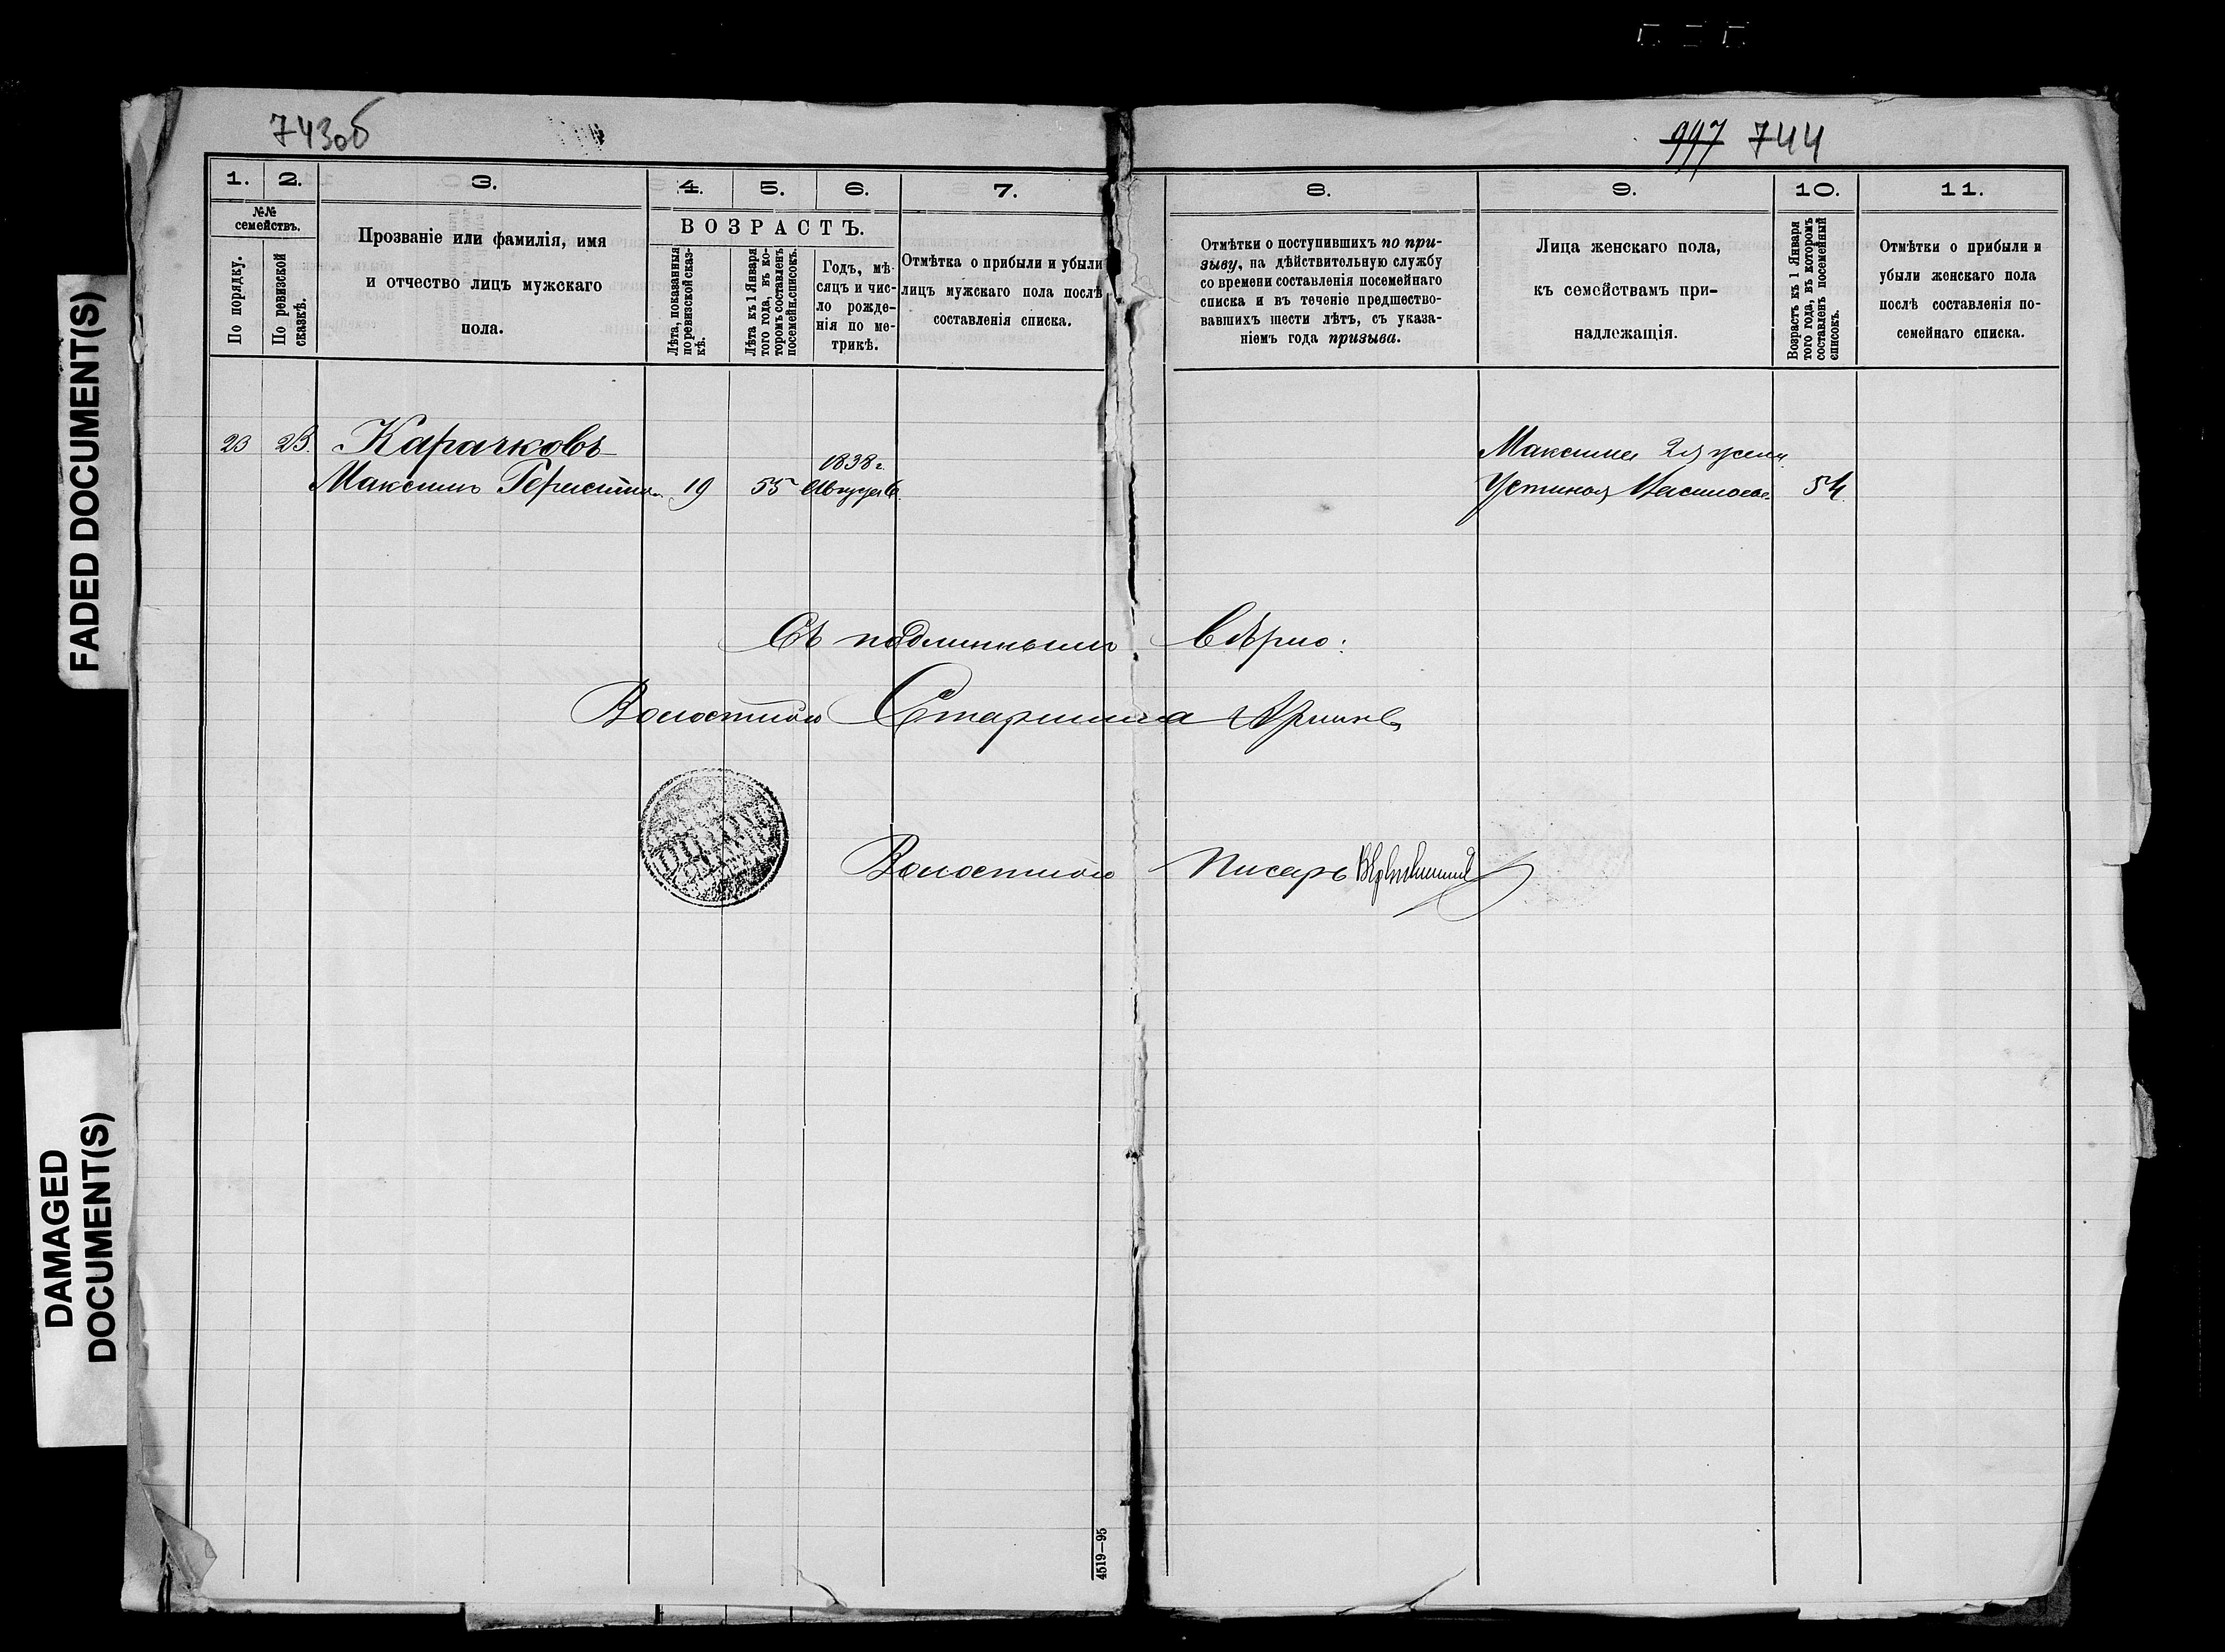 743об
997 744
1. 2. 3. 4. 5. 6. 7. 8. 9. 10. 11.
№№ семействъ.
По порядку.
По ревизской сказкѣ.
Прозваніе или фамилія, имя
и отчество лицъ мужскаго
пола.
ВОЗРАСТЪ.
Лѣта, показанныя
по ревизской сказ-
кѣ.
Лѣта къ 1 Января
того года, въ ко-
торомъ составленъ
посемейн. списокъ.
Годъ, мѣ-
сяцъ и чис-
ло рожде-
нія по ме-
трикѣ.
Отмѣтка о прибыли и убыли
лицъ мужскаго пола послѣ
составленія списка.
Отмѣтки о поступившихъ по при-
зыву, на дѣйствительную службу
со времени составленія посемейнаго
списка и въ теченіе предшество-
вавшихъ шести лѣтъ, съ указа-
ніемъ года призыва.
Лица женскаго пола,
къ семействамъ при-
надлежащія.
Возрастъ къ 1 Января
того года, въ которомъ
составленъ посемейный
списокъ.
Отмѣтки о прибыли и
убыли женскаго пола
послѣ составленія по-
семейнаго списка.
23 23. Карачковъ
1838 г.
Максима 2я жена
Максимъ 19 55 Августа
Устинья 54
Съ подлиннымъ вѣрно:
Волостной Старшина
Волостной Писарь
4519—95
FADED DOCUMENT(S)
DAMAGED
DOCUMENT(S)